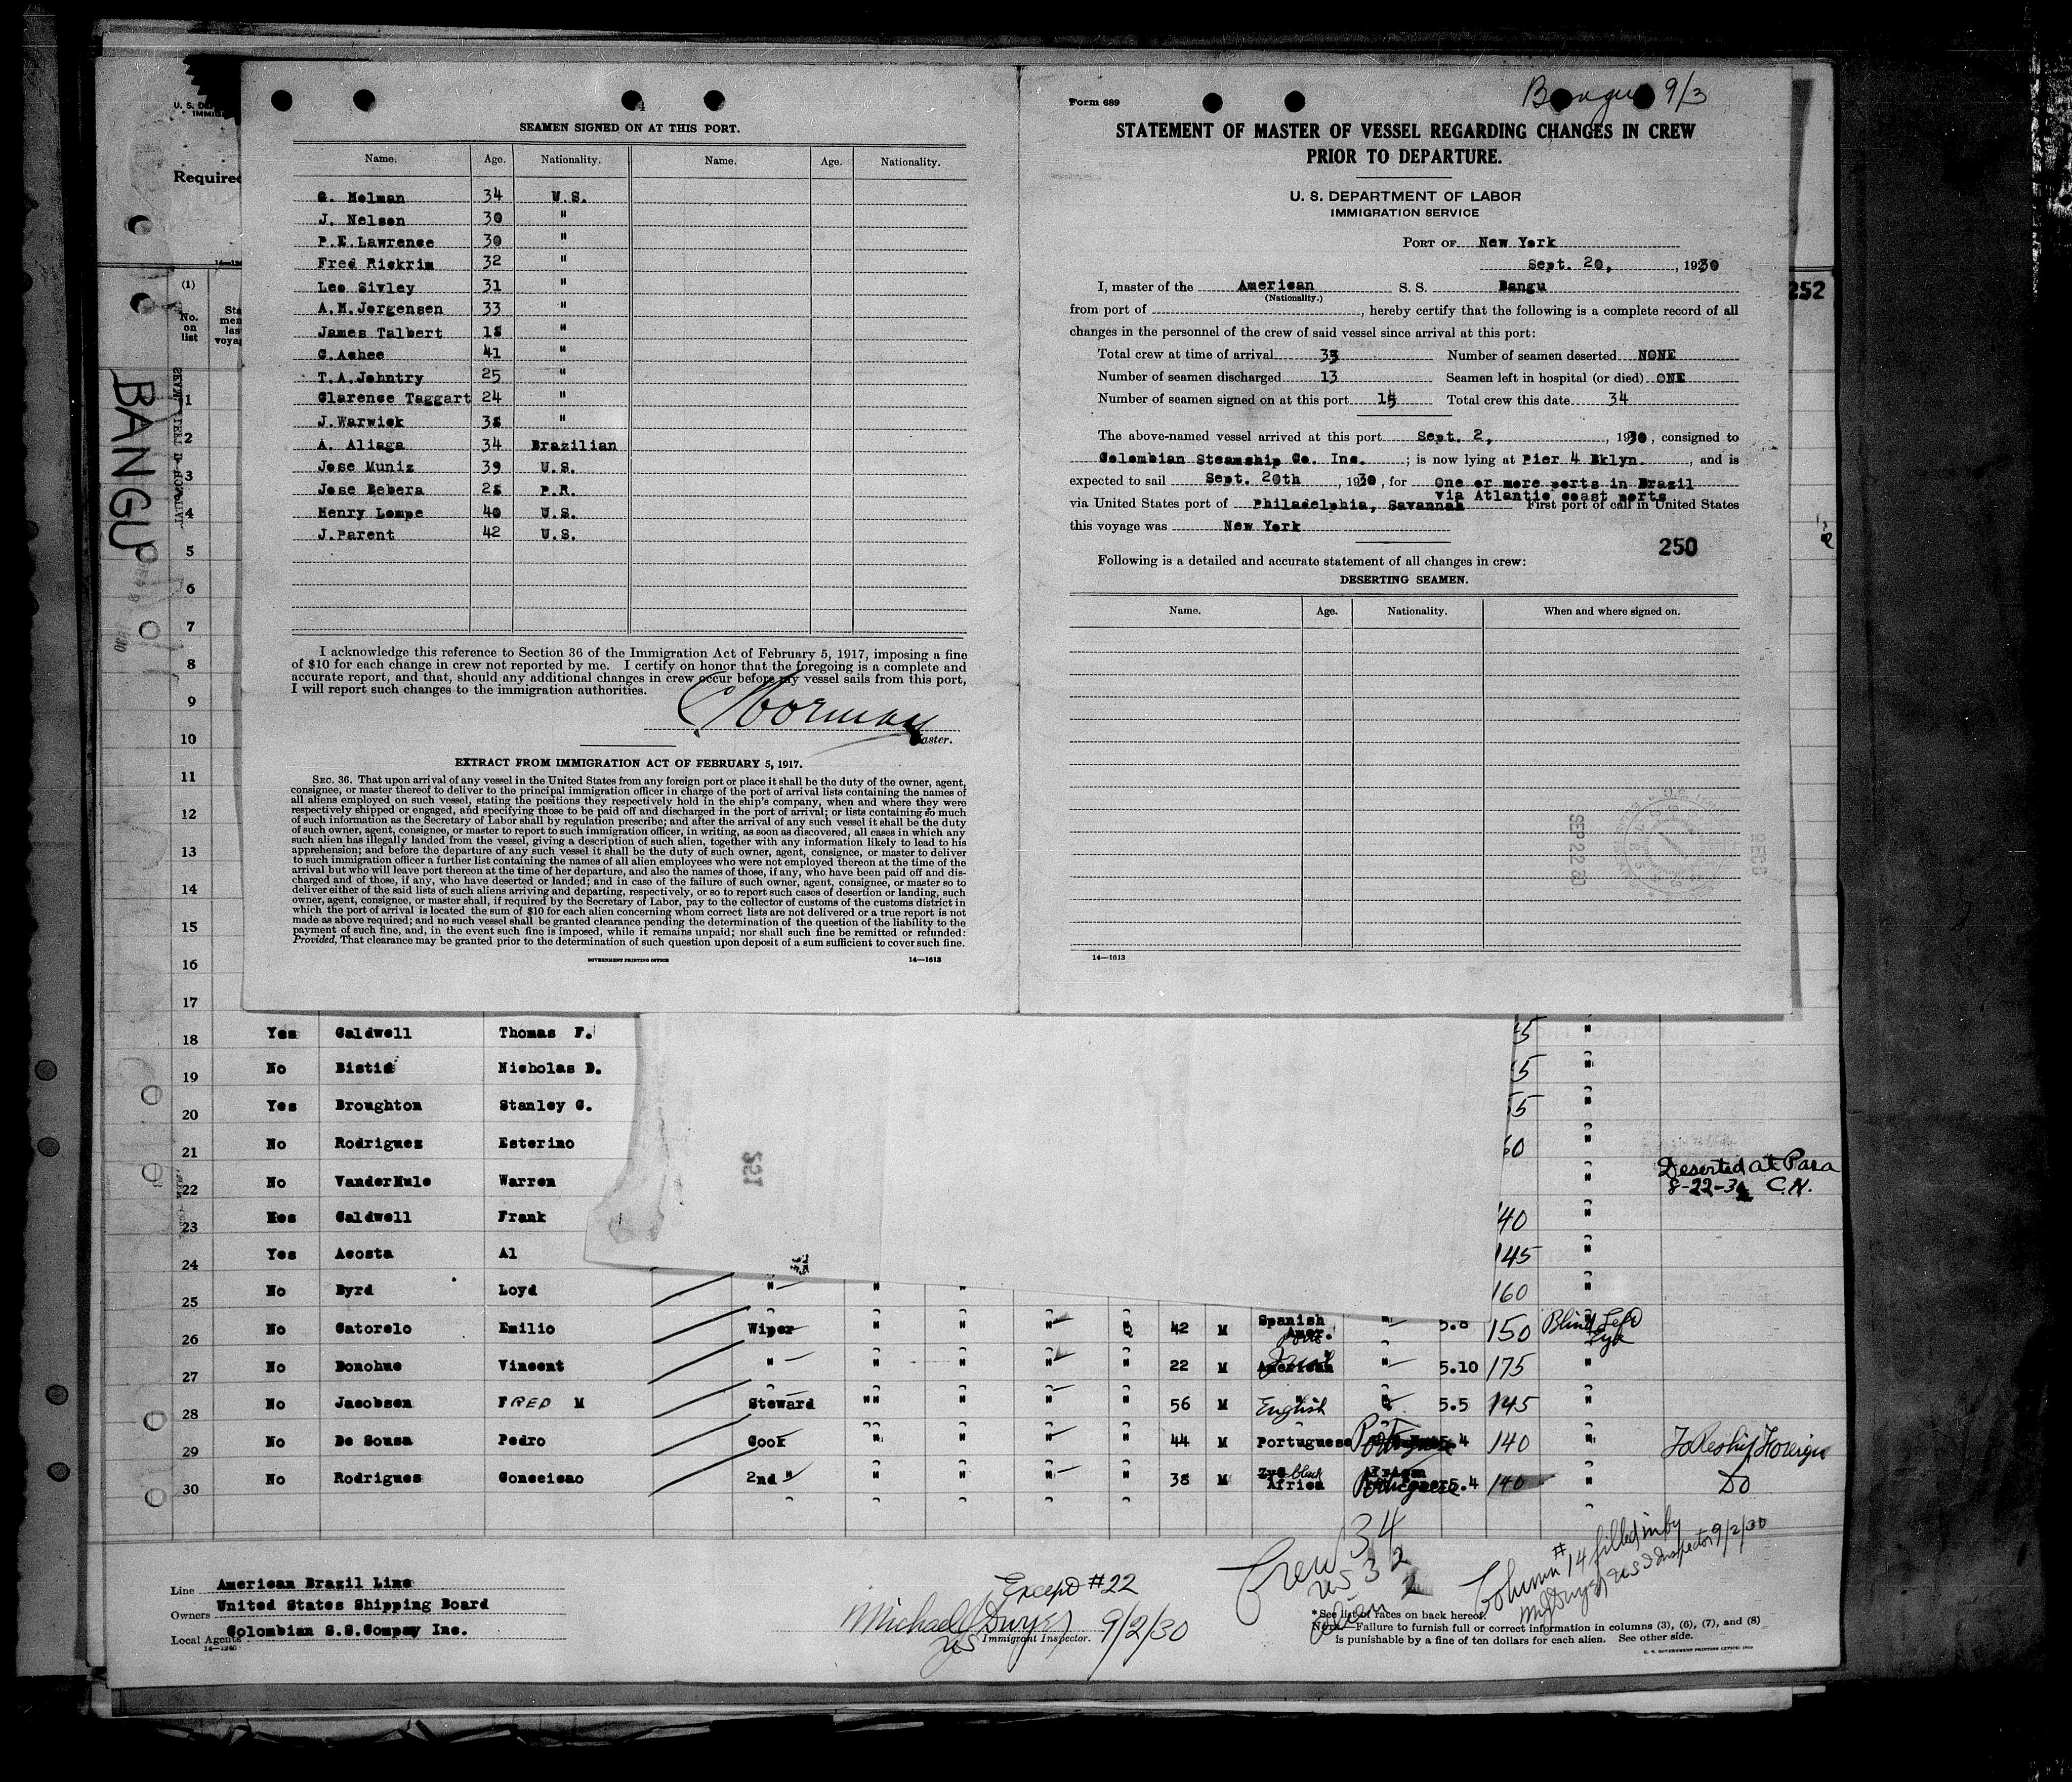 4
SEAMEN SIGNED ON AT THIS PORT.
Name. Age. Nationality. Name. Age. Nationality.
G. Melman 34 U.S.
J. Nelson 30 "
P.E.Lawrence 30 "
Fred Rickrim 32 "
Lee Sivley 31 "
A.M.Jorgensen 33 "
James Talbert 18 "
C.Ashee 41 "
T.A.Johntry 25 "
Clarence Taggart 24 "
J.Warwick "
A. Aliaga 34 Brazilian
Jose Muniz 39 U.S.
Jose Bebera P.R.
Henry Lompe 40 U.S.
J.Parent 42 U.S.
I acknowledge this reference to Section 36 of the Immigration Act of February 5, 1917, imposing a fine
of $10 for each change in crew not reported by me. I certify on honor that the foregoing is a complete and
accurate report, and that, should any additional changes in crew occur before my vessel sails from this port,
I will report such changes to the immigration authorities.
Master.
EXTRACT FROM IMMIGRATION ACT OF FEBRUARY 5, 1917.
SEC. 36. That upon arrival of any vessel in the United States from any foreign port or place it shall be the duty of the owner, agent,
consignee, or master thereof to deliver to the principal immigration officer in charge of the port of arrival lists containing the names of
all aliens employed on such vessel, stating the positions they respectively hold in the ship's company, when and where they were
respectively shipped or engaged, and specifying those to be paid off and discharged in the port of arrival; or lists containing so much
of such information as the Secretary of Labor shall by regulation prescribe; and after the arrival of any such vessel it shall be the duty
of such owner, agent, consignee, or master to report to such immigration officer, in writing, as soon as discovered, all cases in which any
such alien has illegally landed from the vessel, giving a description of such alien, together with any information likely to lead to his
apprehension; and before the departure of any such vessel it shall be the duty of such owner, agent, consignee, or master to deliver
to such immigration officer a further list containing the names of all alien employees who were not employed thereon at the time of the
arrival but who will leave port thereon at the time of her departure, and also the names of those, if any, who have been paid off and dis-
charged and of those, if any, who have deserted or landed; and in case of the failure of such owner, agent, consignee, or master so to
deliver either of the said lists of such aliens arriving and departing, respectively, or so to report such cases of desertion or landing, such
owner, agent, consignee, or master shall, if required by the Secretary of Labor, pay to the collector of customs of the customs district in
which the port of arrival is located the sum of $10 for each alien concerning whom correct lists are not delivered or a true report is not
made as above required; and no such vessel shall be granted clearance pending the determination of the question of the liability to the
payment of such fine, and, in the event such fine is imposed, while it remains unpaid; nor shall such fine be remitted or refunded:
Provided, That clearance may be granted prior to the determination of such question upon deposit of a sum sufficient to cover such fine.
GOVERNMENT PRINTING OFFICE 14—1613
Bangu 9/3
Form 689
STATEMENT OF MASTER OF VESSEL REGARDING CHANGES IN CREW
PRIOR TO DEPARTURE.
U. S. DEPARTMENT OF LABOR
IMMIGRATION SERVICE
PORT OF New York
Sept. 20, , 1930
I, master of the American S. S. Bangu
(Nationality.)
from port of , hereby certify that the following is a complete record of all
changes in the personnel of the crew of said vessel since arrival at this port:
Total crew at time of arrival 33 Number of seamen deserted NONE
Number of seamen discharged 13 Seamen left in hospital (or died) ONE
Number of seamen signed on at this port 15 Total crew this date 34
The above-named vessel arrived at this port Sept. 2, , 1930, consigned to
Colombian Steamship Co. Inc. ; is now lying at Pier 4 Bklyn. , and is
expected to sail Sept. 20th , 1930, for One or more ports in Brazil
via Atlantic coast ports
via United States port of Philadelphia, Savannah First port of call in United States
this voyage was New York
250
Following is a detailed and accurate statement of all changes in crew:
DESERTING SEAMEN.
Name. Age. Nationality. When and where signed on.
SEP 22 30
REC'D
14—1613
252
U. S. DE
IMMIG
Required
BANGU
(1)
No.
on
list
1
2
3
4
5
6
7
8
9
10
11
12
13
14
15
16
17
18 Yes Caldwell Thomas F. "
19 No Bistis Nicholas D. "
20 Yes Broughton Stanley G. "
21 No Rodriguez Esterino "
22 No VanderMule Warren " Deserted at Para
8-22-30 C.N.
23 Yes Caldwell Frank 140 "
24 Yes Acosta Al 145 "
25 No Byrd Loyd " " " 160 "
26 No Catorelo Emilio Wiper " " " " 42 M Spanish Amer. " 5.8 150 Blind Left Eye
27 No Donohue Vincent " " " " " 22 M American " 5.10 175 "
28 No Jacobsen FRED M Steward "" " " " 56 M English " 5.5 145 "
29 No De Sousa Pedro Cook " " " " 44 M Portuguese 5.4 140 " To Reship Foreign
30 No Rodrigues Conceicao 2nd " " " " " 38 M black Africa Portuguese 5.4 140 " Do
251
Crew 34
US 32
alien 2
Column #14 filled in by
M Dwyer US Inspector 9/2/30
Line American Brazil Line
Owners United States Shipping Board
Local Agents Colombian S.S.Company Inc.
14—1240
Except #22
Michael J Dwyer 9/2/30
US Immigrant Inspector.
*See list of races on back hereof.
NOTE.—Failure to furnish full or correct information in columns (3), (6), (7), and (8)
is punishable by a fine of ten dollars for each alien. See other side.
U. S. GOVERNMENT PRINTING OFFICE: 1929